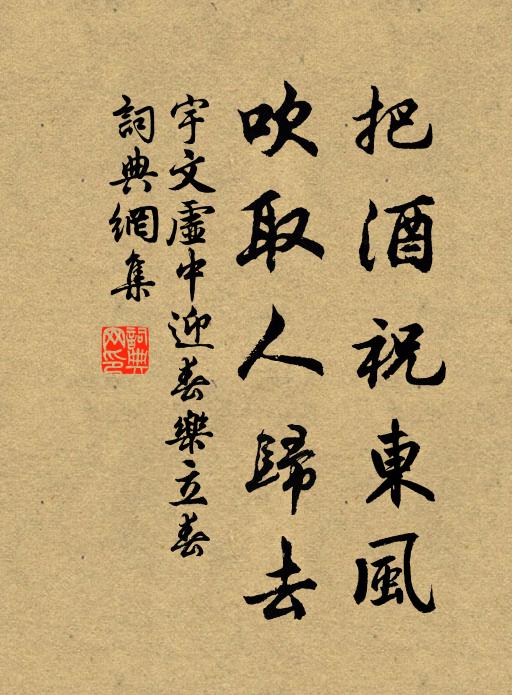 把酒祝東風
吹取人歸去
宇文虛中迎春樂立春
詞典網集
詞典
网印